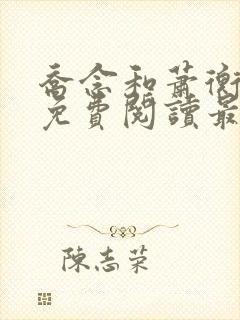 喬念和蕭衡
免費閱讀最
陳志榮